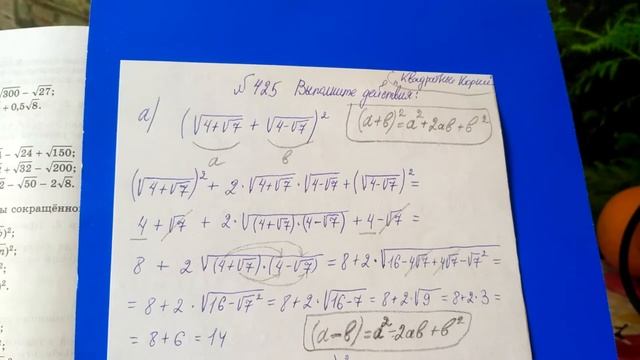 √300 − √27;
+ 0,5√8.
− √24 + √150;
+ √32 − √200;
− √50 − 2√8.
ы сокращённо
)²;
)²;
№ 425 Выполните действия:
Квадратные корни
а) (√(4+√7) + √(4−√7))²
(a+b)² = a² + 2ab + b²
a b
(√(4+√7))² + 2·√(4+√7)·√(4−√7) + (√(4−√7))² =
4 + √7 + 2·√((4+√7)·(4−√7)) + 4 − √7 =
8 + 2√((4+√7)·(4−√7)) = 8+2·√(16−4√7+4√7−√7²) =
= 8+2·√(16−√7²) = 8+2·√(16−7) = 8+2·√9 = 8+2·3 =
= 8+6 = 14
(a−b) = a² − 2ab + b²